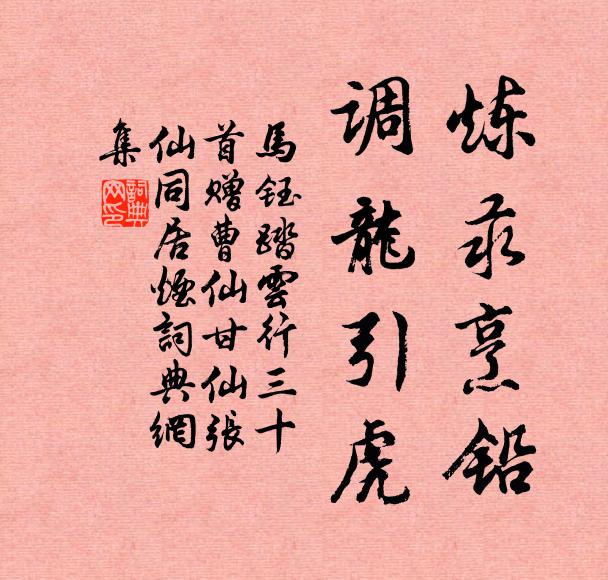 炼汞烹铅
调龍引虎
馬鈺踏雲行三十
首贈曹仙甘仙張
仙同居煙詞典網
集
詞典
网印